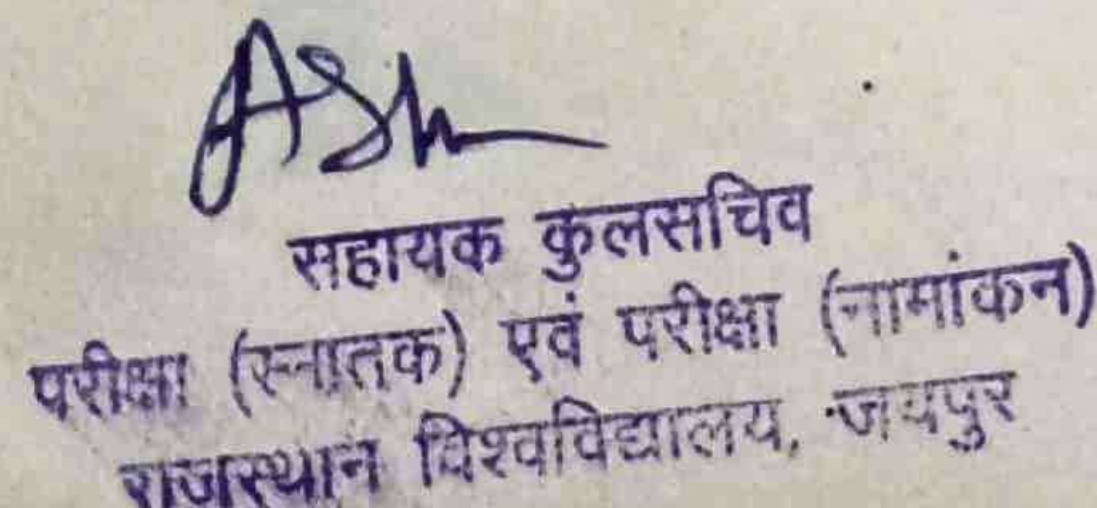 सहायक कुलसचिव
परीक्षा (स्नातक) एवं परीक्षा (नामांकन)
राजस्थान विश्वविद्यालय, जयपुर